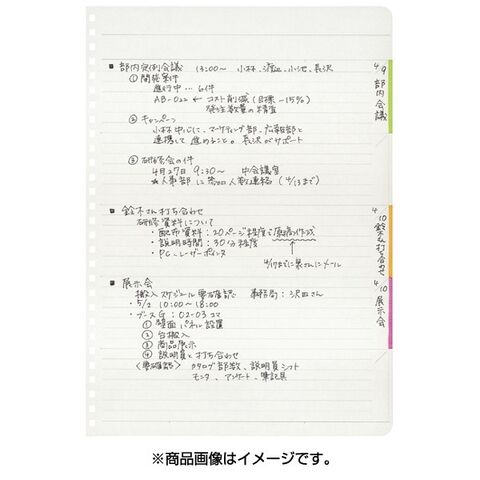 ■ 部内定例会議 13:00～ 小林、渡辺、小池、長沢
① 開発案件
進行中… 6件
AB-022 ← コスト削減（目標-15%）
発注数量の精査
② キャンペーン
小林中心にして、マーケティング部、広報部と
連携して進めること。長沢がサポート
③ 研修会の件
4月27日 9:30～ 中会議室
★人事部に参加人数連絡（4/13まで）
■ 鈴木さん打ち合わせ
研修資料について
・配布資料：20ページ程度で原稿作成
・説明時間：30分程度
・PC、レーザーポインタ
4/17までに奥さんにメール
■ 展示会
搬入スケジュール要確認 事務局：沢田さん
・5/2 10:00～18:00
・ブースG：02-03 2コマ
① 壁面パネル設置
② 台搬入
③ 商品展示
④ 説明員と打ち合わせ
〈要確認〉カタログ部数、説明員シフト
モニタ、アンケート、筆記具
4/9 部内会議
4/10 鈴木さん打合せ
4/10 展示会
※商品画像はイメージです。